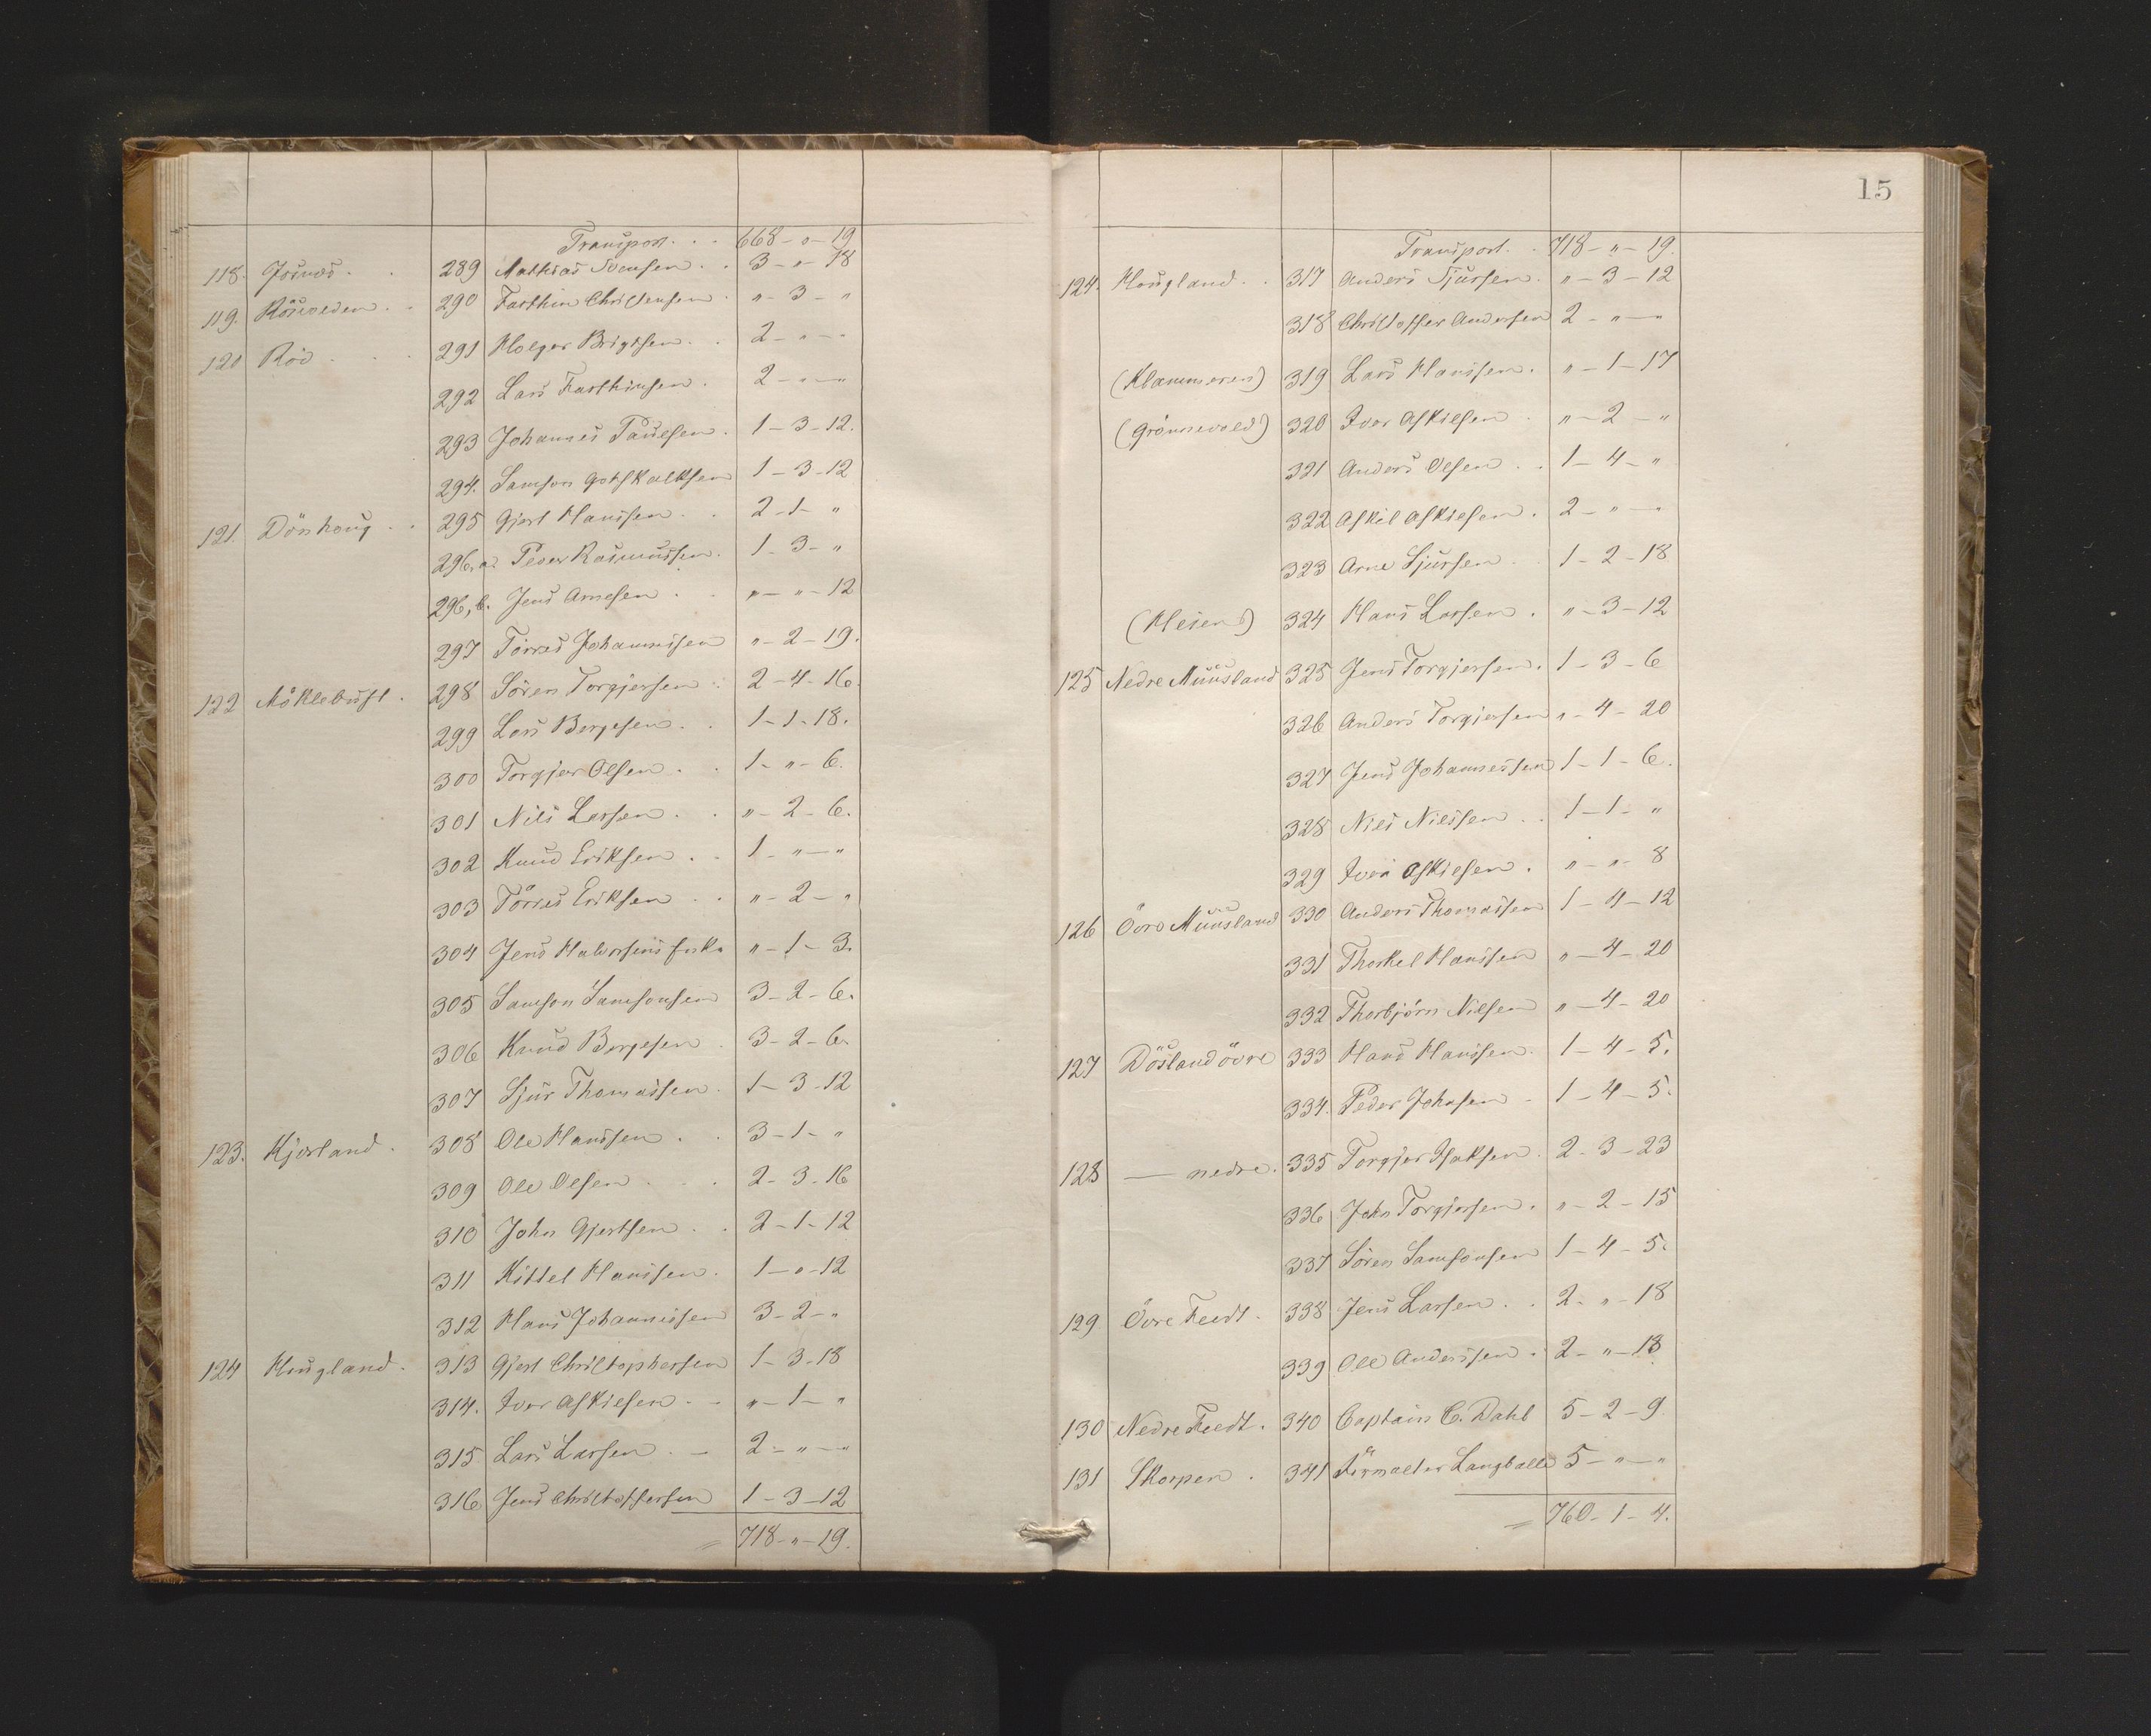 Transport. . . 668 - " - 19
118. Jsnæs . . 289 Mathias Svensen . . 3 - " - 18
119. Röswolden . . 290 Farthin Christensen . " - 3 - "
120 Röd . . . 291 Holger Brigtsen . . 2 - " - "
292 Lars Farthinsen . 2 - " - "
293 Johannes Paulsen . 1 - 3 - 12.
294. Samson Gotskalksen 1 - 3 - 12
121. Dönhoug . . 295 Gjert Hanssen . . 2 - 1 - "
296, a. Peder Rasmussen . 1 - 3 - "
296, b. Jens Arnesen . . " - " - 12
297 Törres Johannessen " - 2 - 19.
122 Möklebust . 298 Sören Torgjersen . 2 - 4 - 16.
299 Lars Børgesen . . 1 - 1 - 18.
300 Torgjer Olsen . . 1 - " - 6.
301 Nils Larsen . . " - 2 - 6.
302 Knud Eriksen . . 1 - " - "
303 Törres Eriksen . . " - 2 - "
304 Jens Halvorsens Enke " - 1 - 3.
305 Samson Samsonsen 3 - 2 - 6.
306 Knud Børgesen . 3 - 2 - 6.
307 Sjur Thomassen . 1 - 3 - 12
123. Kjærland . 308 Ole Hanssen . . 3 - 1 - "
309 Ole Olsen . . . 2 - 3 - 16
310 John Gjertsen . . 2 - 1 - 12
311 Kittel Hanssen . 1 - " - 12
312 Hans Johannessen 3 - 2 - "
124 Hougland . 313 Gjert Christophersen 1 - 3 - 18
314. Iver Askilsen . - " - 1 - "
315 Lars Larsen . - 2 - " - "
316 Jens Christoffersen 1 - 3 - 12
= 718 - " - 19.
15
Transport. . 718 - " - 19.
124. Hougland . . 317 Anders Sjursen . " - 3 - 12
318 Christoffer Andersen 2 - " - "
(Klammeren) 319 Lars Hanssen . " - 1 - 17
(Grönnevold) 320 Iver Askilsen . " - 2 - "
321 Anders Olsen . . 1 - 4 - "
322 Askil Askilsen . 2 - " - "
323 Arne Sjursen . . 1 - 2 - 18
(Heien) 324 Hans Larsen . " - 3 - 12
125 Nedre Muusland 325 Jens Torgjersen . 1 - 3 - 6
326 Anders Torgjersen " - 4 - 20
327 Jens Johannessen 1 - 1 - 6.
328 Nils Nilssen . . 1 - 1 - "
329 Iver Askilsen . " - " - 8
126 Övre Muusland 330 Anders Thomassen 1 - 4 - 12
331 Thorkel Hanssen " - 4 - 20
332 Thorbjörn Nilsen " - 4 - 20
127 Dösland övre 333 Hans Hanssen . 1 - 4 - 5.
334. Peder Johnsen . 1 - 4 - 5.
128 — nedre . 335 Torgjer Isaksen . 2 - 3 - 23
336 John Torgjersen . " - 2 - 15
337 Sören Samsonsen 1 - 4 - 5.
129 Övre Feedt . 338 Jens Larsen . . 2 - " - 18
339 Ole Anderssen . 2 - " - 18
130 Nedre Feedt . 340 Captain C. Dahl 5 - 2 - 9
131 Skorpen . 341 Forvalter Langballe 5 - " - "
= 760 - 1 - 4.